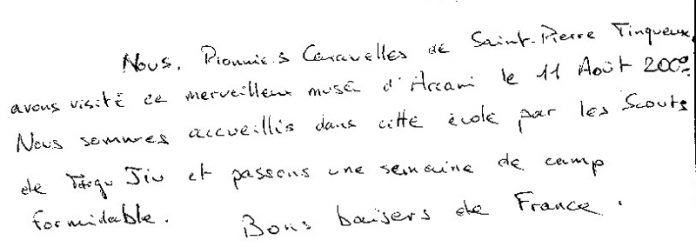 Nous, Pionniers Caravelles de Saint-Pierre Tinqueux,
avons visité ce merveilleux musée d'Arcani le 11 Août 2009.
Nous sommes accueillis dans cette école par les Scouts
de Târgu Jiu et passons une semaine de camp
formidable. Bons baisers de France.